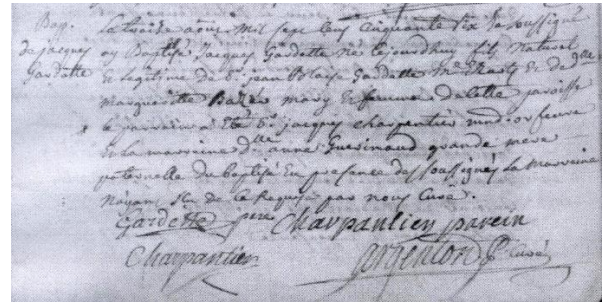 Bap. Le troise aoust Mil Sept Cens Cinquante Six Je soussigné
de jacques ay Baptisé Jacques Gardette Né Cejourdhuy fils Naturel
Gardette & Legitime de Sr. jean Blaise Gardette Me & de dlle
Margueritte mary & femme de cette paroisse
Le parrain a Eté Sr. jacques charpentier md orfeure
Et La marraine dlle anne Guerinaud grande mere
paternelle du Baptisé En presence des soussignés La Marraine
Nayant Sçu de ce Requise par nous Curé.
Gardette pere Charpantier parein
Charpantier argenton Pr Curé